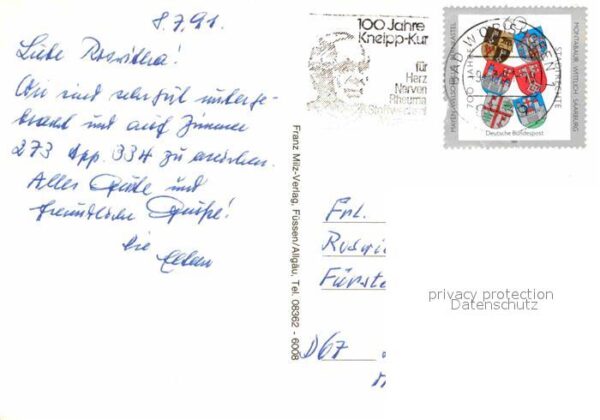 8.7.91.
Liebe Roswitha!
Wir sind sehr gut unterge-
bracht und auf Zimmer
273 App. 334 zu erreichen.
Alles Gute und
freundliche Grüße!
Die
Eltern
100 Jahre
Kneipp-Kur
für
Herz
Nerven
Rheuma
Stoffwechsel
BAD WÖRISHOFEN 1
700 JAHRE
STADTRECHTE
MONTABAUR · WITTLICH · SAARBURG
Deutsche Bundespost
Franz Milz-Verlag, Füssen/Allgäu, Tel. 08362 - 6008
Frl.
Roswi
Fürste
D67
privacy protection
Datenschutz